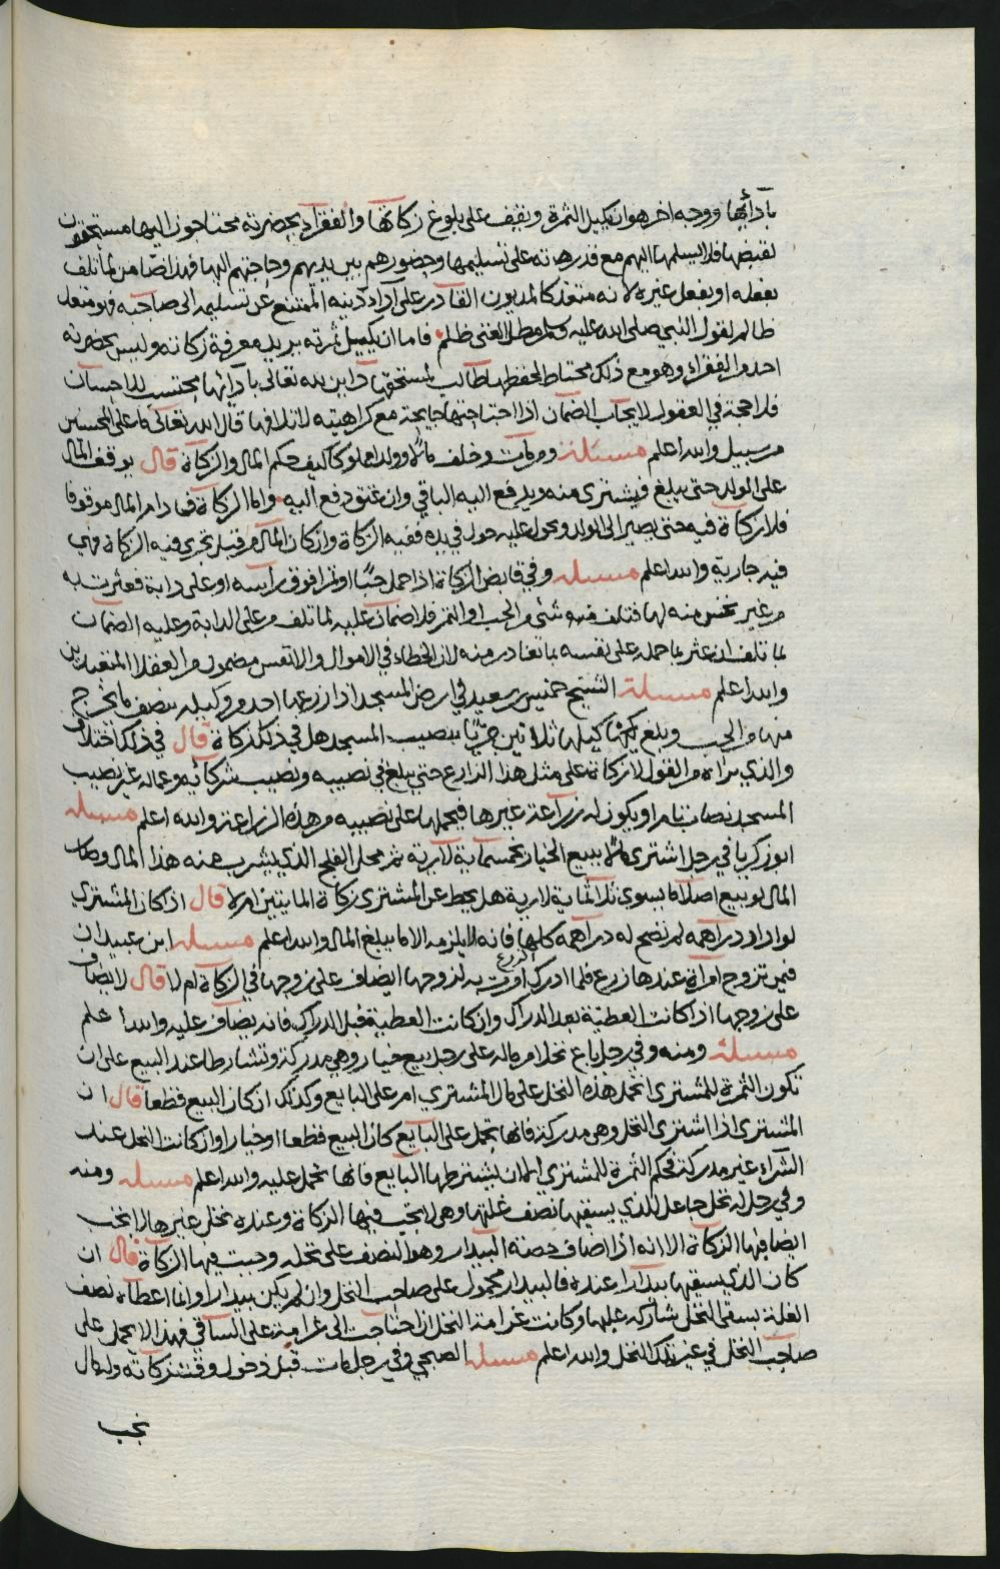 بأدائها ووجه اخر هو ان يكيل الثمرة ويقف على بلوغ زكاتها والفقراء بحضرته محتاجون اليها مستحقون
لقبضها فلا يسلمها اليهم مع قدرته على تسليمها وحضورهم بين يديهم وحاجتهم اليها فهذا ضامن لما تلف
بفعله او بفعل غيره لانه متعد كالمديون القادر على أداء دينه الممتنع عن تسليمه الى صاحبه فهو متعد
ظالم لقول النبي صلى الله عليه وسلم مطل الغني ظلم فاما ان يكيل ثمرته يريد معرفة زكاته وليس بحضرته
احد من الفقراء وهو مع ذلك محتاط لحفظها طالب لمستحقها داين لله تعالى بأدائها محتسب للاحسان
فلا حجة في العقول لايجاب الضمان اذا اجتاحتها جايحة مع كراهيته لاتلافها قال الله تعالى ما على المحسنين
من سبيل والله اعلم مسئلة ومن مات وخلف مالا وولدا مملوكا كيف حكم المال والزكاة قال يوقف المال
على الولد حتى يبلغ فيشترى منه ويدفع اليه الباقي وان عتق دفع اليه واما الزكاة فما دام المال موقوفا
فلا زكاة فيه حتى يصير الى الولد ويحول عليه حول في يده ففيه الزكاة وان كان المال من قبل تجري فيه الزكاة فهي
فيه جارية والله اعلم مسئله وفي قابض الزكاة اذا حمل حبا او تمرا فوق راسه او على دابة فعثرت به
من غير نخس منه لها فتلف منه شئ من الحب او التمر فلا ضمان عليه لما تلف من على الدابة وعليه الضمان
لما تلف ان عثر بما حمله على نفسه بما تغادر منه لان الخطاء في الاموال والانفس مضمون من العقلا المتعبدين
والله اعلم مسئلة الشيخ خميس بن سعيد في ارض المسجد اذا زرعها احد من وكيله بنصف ما يخرج
منها من الحب وبلغ كيلها ثلاثين جريا بنصيب المسجد هل في ذلك زكاة قال في ذلك اختلاف
والذي نراه من القول لا زكاة على مثل هذا الزارع حتى يبلغ في نصيبه ونصيب شركائه وعماله غير نصيب
المسجد نصاب تام او يكون له زراعة غيرها فيحملها على نصيبه من هذه الزراعة والله اعلم مسئله
ابو زكريا في رجل اشترى مالا ببيع الخيار بخمسماية لارية ثم محل الفلج الذي يشرب منه هذا المال وصار
المال لو بيع اصلا ما يسوى ثلاثماية لارية هل يحط عن المشتري زكاة المايتين ام لا قال اذا كان المشتري
لو اراد دراهمه لم تصح له دراهمه كلها فانه لا يلزمه الا ما يبلغ المال والله اعلم مسئله ابن عبيدان
فيمن تزوج امراة عندها زرع فلما ادرك الزرع اوفت به لزوجها ايضاف على زوجها في الزكاة ام لا قال لا يضاف
على زوجها اذا كانت العطية بعد الدراك وان كانت العطية قبل الدراك فانه يضاف عليه والله اعلم
مسئلة ومنه وفي رجل باع نخلا من ماله على رجل بيع خيار وهي مدركة وتشارطا عند البيع على ان
تكون الثمرة للمشتري اتحمل هذه النخل على مال المشتري ام على البايع وكذلك ان كان البيع قطعا قال ان
المشتري اذا اشترى النخل وهي مدركة فانها تحمل على البايع كان البيع قطعا او خيارا وان كانت النخل عند
الشراء غير مدركة فحكم الثمرة للمشتري الا ان يشترطها البايع فانها تحمل عليه والله اعلم مسئله ومنه
وفي رجل له نخل جاعل للذي يسقيها نصف غلتها وهي لا يجب فيها الزكاة وعنده نخل غيرها لا يجب
ايضا فيها الزكاة الا انه اذا اضاف حصة البيدار وهو النصف على نخله وجبت فيها الزكاة قال ان
كان الذي يسقيها بيدارا عنده فالبيدار محمول على صاحب النخل وان لم يكن بيدارا وانما اعطاه نصف
الغلة بسقي النخل شاركه عليها وكانت غرامة النخل ان احتاجت الى غرامة على الساقي فهذا لا يحمل على
صاحب النخل في غير تلك النخل والله اعلم مسئله الصبحي وفي رجل مات قبل دخول وقت زكاته وله مال
تجب